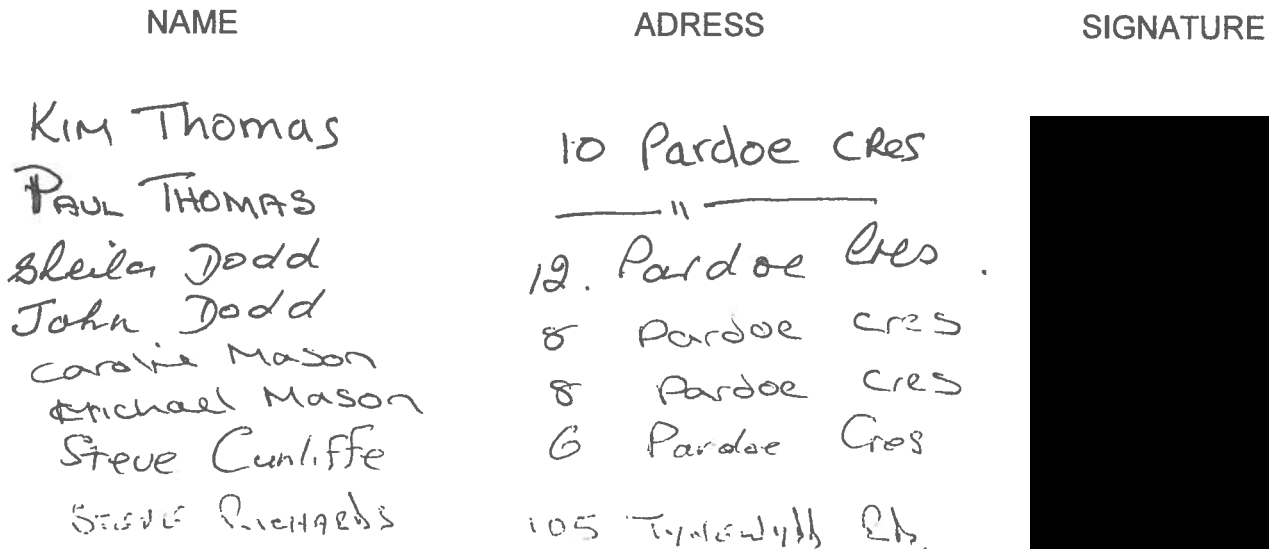 NAME ADRESS SIGNATURE
Kim Thomas 10 Pardoe CRes
PAUL THOMAS ——— " ———
Sheila Dodd 12. Pardoe Cres.
John Dodd
Caroline Mason 8 Pardoe cres
Michael Mason 8 Pardoe Cres
Steve Cunliffe 6 Pardoe Cres
STEVE RICHARDS 105